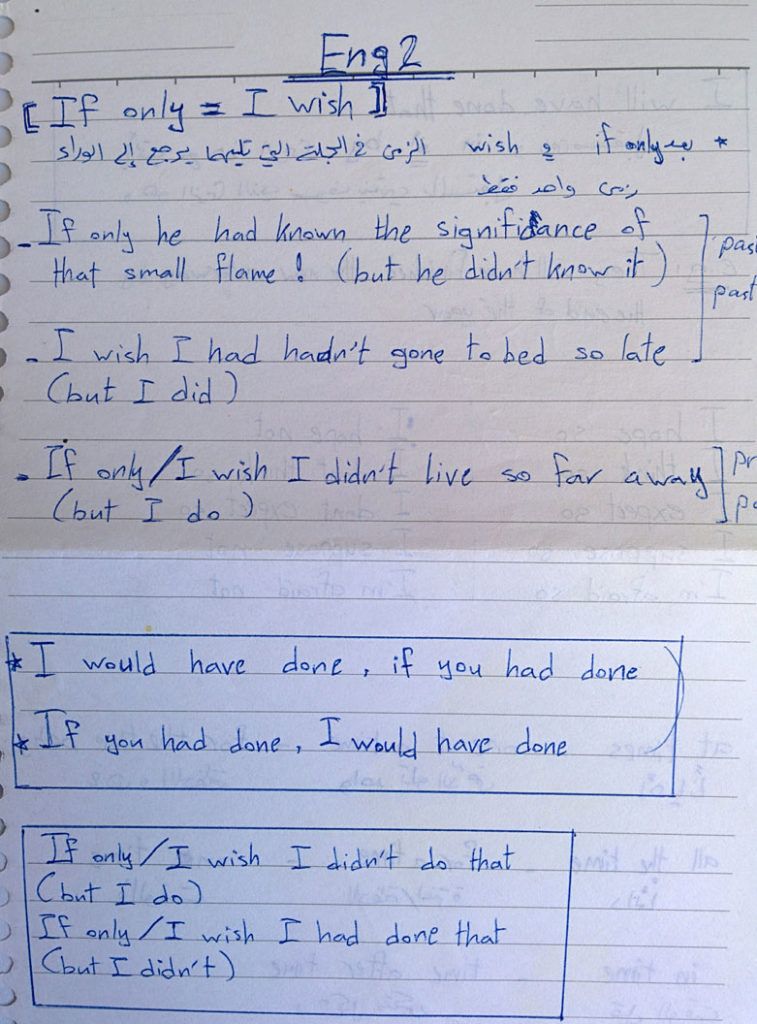 Eng 2
[ If only = I wish ]
* بعد if only و wish الزمن في الجملة التي تليها يرجع إلى الوراء
زمن واحد فقط
- If only he had known the significance of
that small flame! (but he didn't know it)
past
- I wish I had hadn't gone to bed so late
(but I did)
- If only/I wish I didn't live so far away
(but I do)
* I would have done, if you had done
* If you had done, I would have done
If only/I wish I didn't do that
(but I do)
If only/I wish I had done that
(but I didn't)